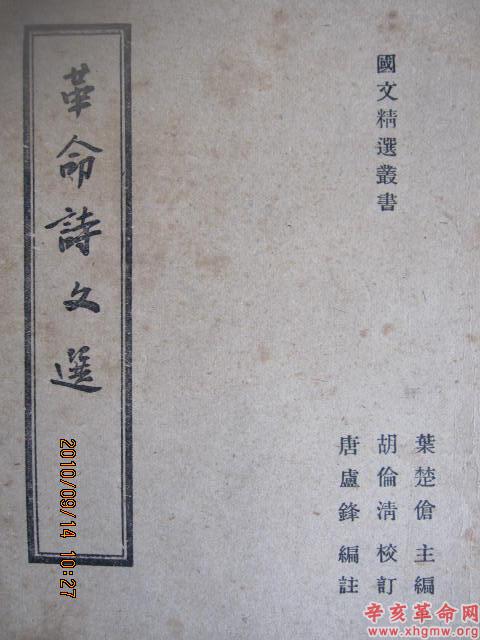 國文精選叢書
葉楚傖 主編
胡倫清 校訂
唐盧鋒 編註
革命詩文選
2010/09/14 10:27
辛亥革命网
www.xhgmw.org